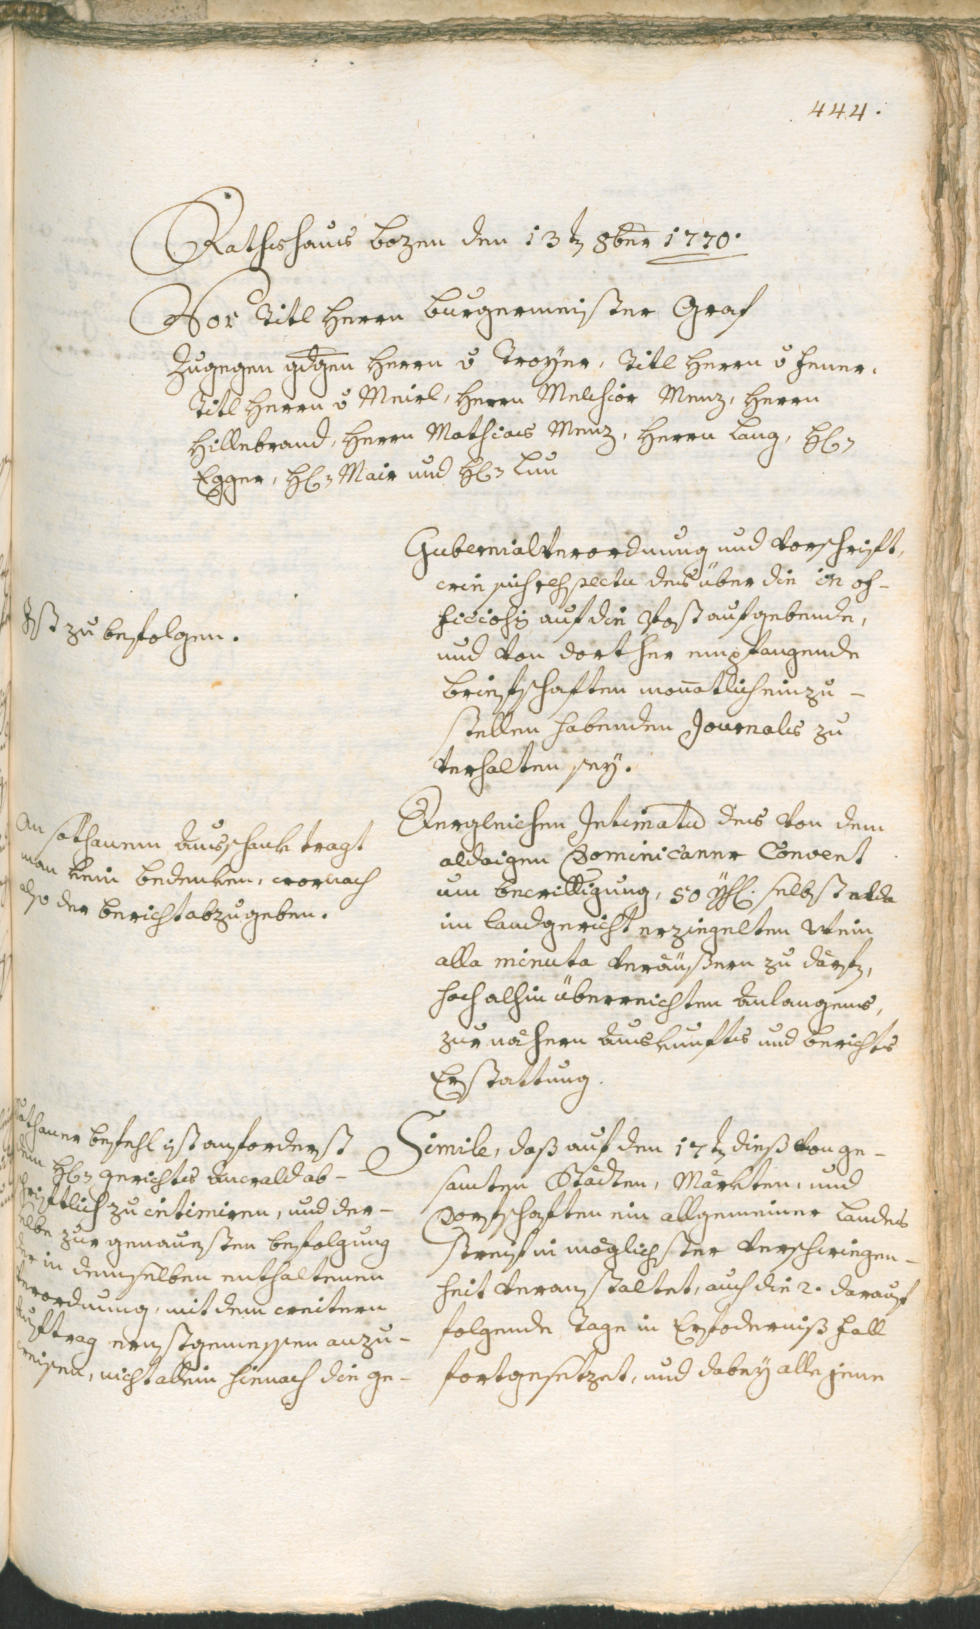 444.
Rathshaus Bozen den 13t 8ber 1770.
Vor Titl Herrn Burgermeister Graf
Zugegen gdgen Herrn v Troyer, Titl Herrn v Feuer,
Titl Herrn v Meirl, Herrn Melchior Menz, Herrn
Hillebrand, Herrn Mathias Menz, Herrn Lang, H:
Egger, H: Mair und H: Luu
Gubernialverordnung und Vorschrift,
wie sich respectu des über die in of-
ficiosis auf die Post aufgebende,
und von dorther empfangende
Briefschaften monatlich einzu-
stellen habenden Journals zu
verhalten sey.
Ist zu befolgen.
Dergleichen Intimatu des von dem
aldaigen Dominicaner Convent
um bewilligung, 50 Yhr. selbst alda
im Landgericht erziegelten Wein
alla minuta veräußern zu därfen,
hoch alhin überreichten Anlangens,
zur nähern Auskunfts und Berichts
Erstattung.
An sothanem Ausschank tragt
man kein bedenken, wornach
also der bericht abzugeben.
Simile, daß auf den 17t dieß von ge-
samten Städten, Märkten, und
Dorfschaften ein allgemeiner Landes
streif in möglichster Verschwiegen-
heit veranstaltet, auch die 2. darauf
folgende Tage in Erfoderniß Fall
fortgesetzet, und dabey alle jene
Sothaner befehl ist anforderst
dem H: Gerichts Anwald ab-
schriftlich zu intimiren, und der-
selbe zur genauesten befolgung
der in demselben enthaltenen
Verordnung, mit dem weitern
Auftrag ernstgemessen anzu-
weisen, nicht allein hienach die ge-